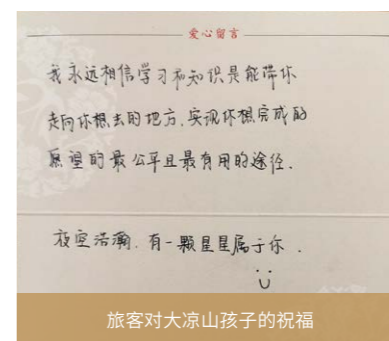 爱心留言
我永远相信学习和知识是能带你
走向你想去的地方,实现你想完成的
愿望的最公平且最有用的途径.
夜空浩瀚.有一颗星星属于你.
旅客对大凉山孩子的祝福